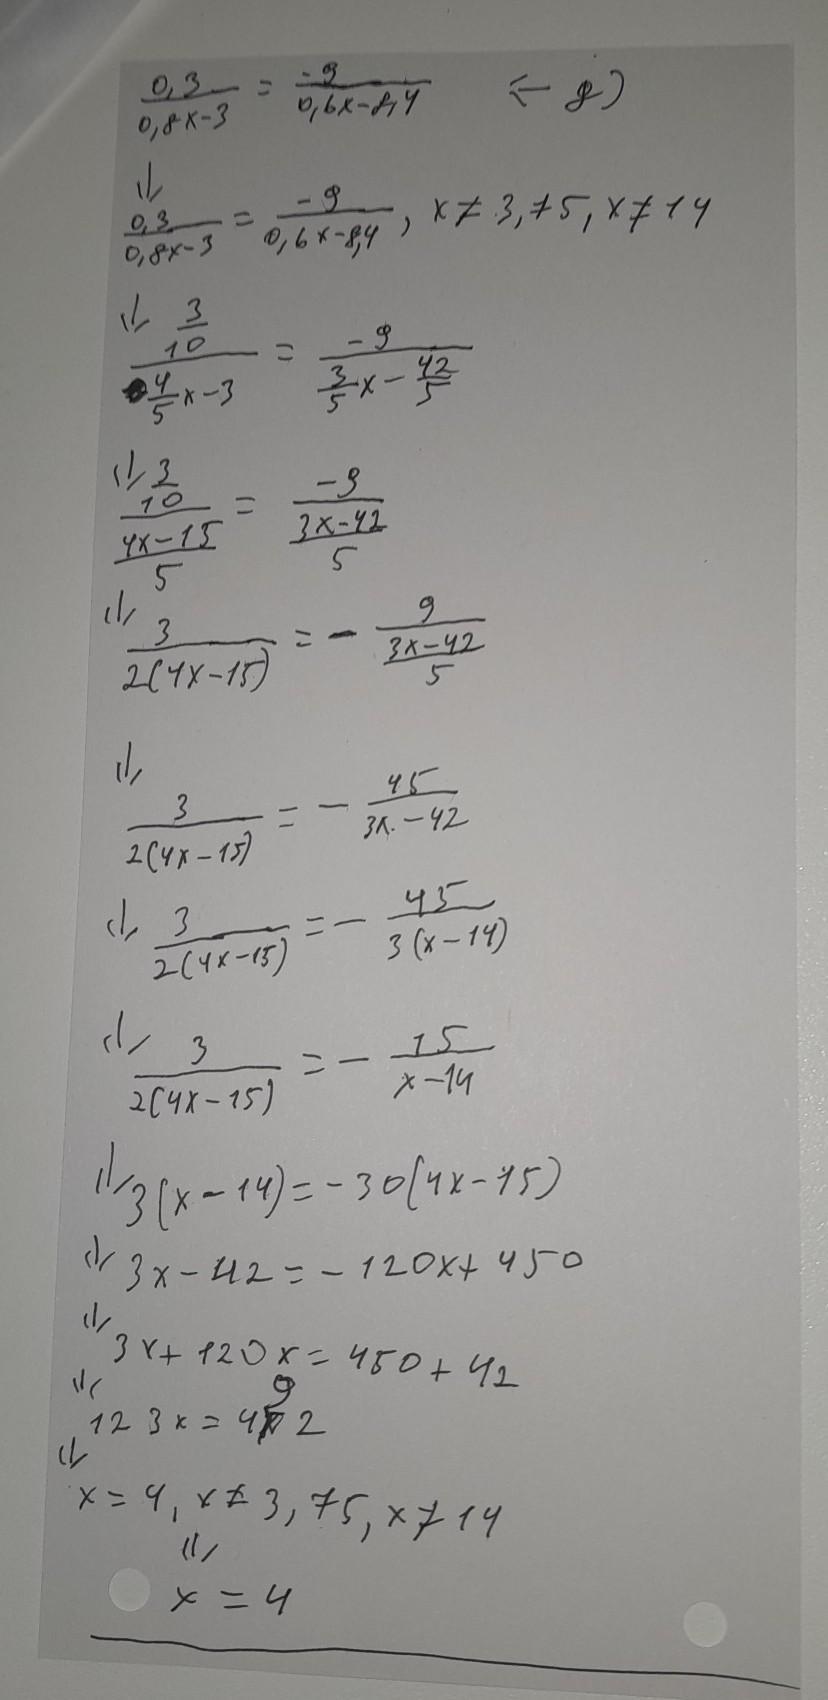 0,3/(0,8x-3) = -9/(0,6x-8,4) ← g)
⇓
0,3/(0,8x-3) = -9/(0,6x-8,4), x≠3,75, x≠14
⇓ (3/10)/(4/5x-3) = -9/(3/5x-42/5)
⇓ (3/10)/((4x-15)/5) = -9/((3x-42)/5)
⇓ 3/(2(4x-15)) = -9/((3x-42)/5)
⇓
3/(2(4x-15)) = -45/(3x-42)
⇓ 3/(2(4x-15)) = -45/(3(x-14))
⇓ 3/(2(4x-15)) = -15/(x-14)
⇓ 3(x-14)=-30(4x-15)
⇓ 3x-42=-120x+450
⇓
3x+120x=450+42
⇓
123x=492
⇓
x=4, x≠3,75, x≠14
⇓
x=4